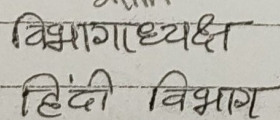 विभागाध्यक्ष
हिंदी विभाग